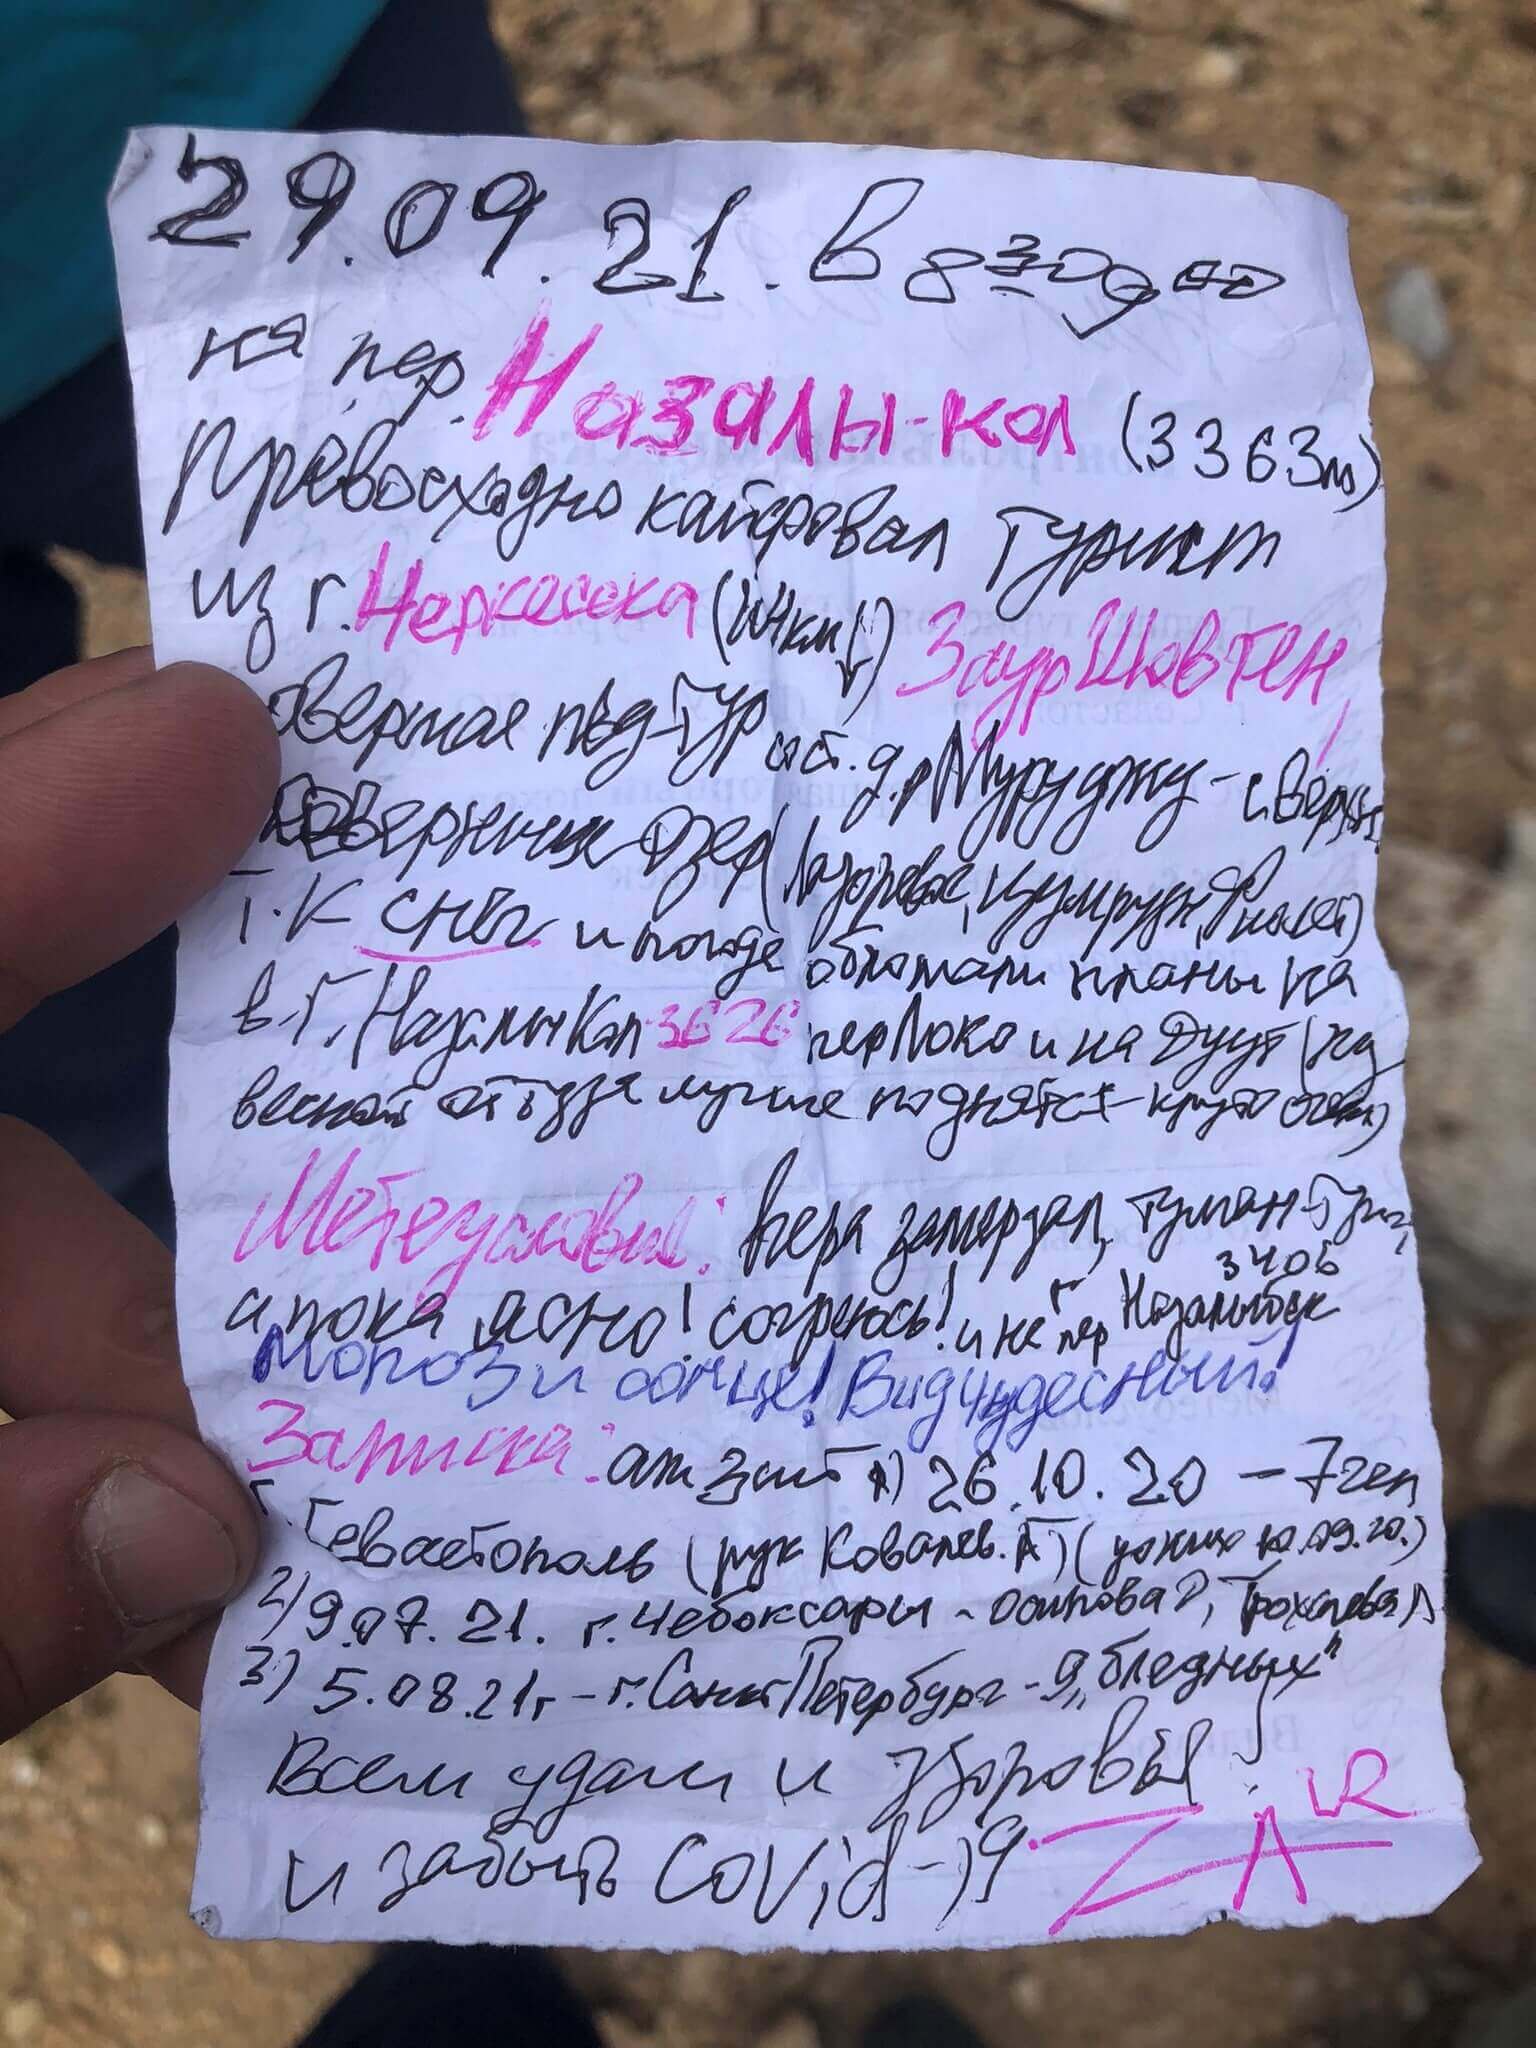 29.09.21. в 8³⁰ одно
на пер. Назалы-кол (3363м)
Превосходно кайфовал турист
из г. Черкесска ( км↓) Заур Шовген,
совершая тур ист. д.р. Муруджу - с верхн.
озер (Лазоревое, Изумрудн,
Т.К снег и погода обломали планы на
в. г. Назалы Кол 3626 пер Локо и на Дуут (на
весной оттуда лучше поднятся - круто очень)
Метеоусловия: Вчера замерзал, туман-
3406
а пока ясно! согреюсь! и на пер Назалыбек
Мороз и солнце! Вид чудесный!
Записка: 1) 26.10.20 - 7 чел
г. Севастополь (рук Ковалев. А) ( у них 10.09.20.)
2) 9.07.21. г. Чебоксары - Осипова Трохалева
3) 5.08.21г - г. Санкт Петербург - 9 „бледных"
Всем удачи и здоровья
и забыть Covid-19. ZAUR